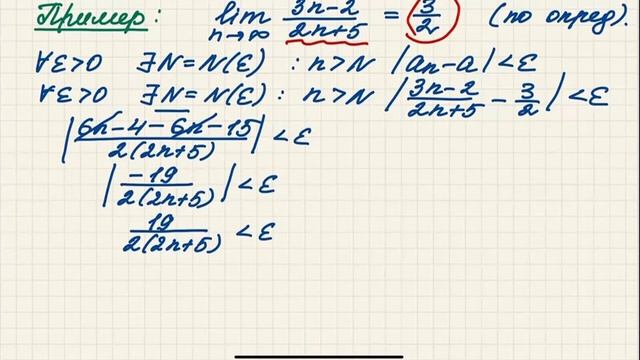 Пример: lim n→∞ 3n-2/2n+5 = 3/2 (по опред).
∀ε>0 ∃N=N(ε) : n>N |an-a|<ε
∀ε>0 ∃N=N(ε) : n>N |3n-2/2n+5 - 3/2|<ε
|6n-4-6n-15/2(2n+5)|<ε
|-19/2(2n+5)|<ε
19/2(2n+5) <ε